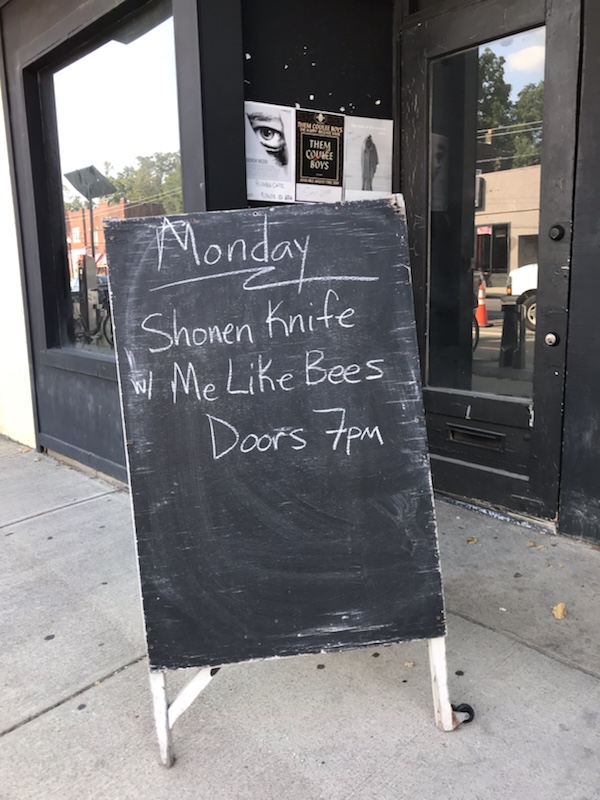 THEM COULEE BOYS
THEM
COULEE
BOYS
Monday
Shonen Knife
w/ Me Like Bees
Doors 7pm